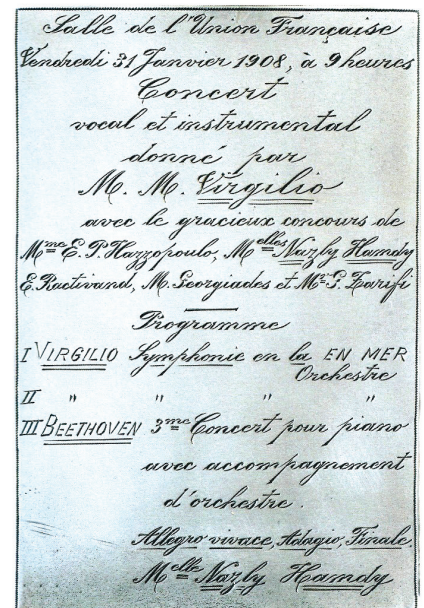 Salle de l'Union Française
Vendredi 31 Janvier 1908, à 9 heures
Concert
vocal et instrumental
donné par
M. M. Virgilio
avec le gracieux concours de
Mme E. P. Hazzopoulo, Melles Nazly Hamdy
E. Ractivand, M. Georgiades et Mr G. Zarifi
Programme
I VIRGILIO Symphonie en la EN MER
Orchestre
II " " " "
III BEETHOVEN 3me Concert pour piano
avec accompagnement
d'orchestre.
Allegro vivace, Adagio, Finale.
Melle Nazly Hamdy